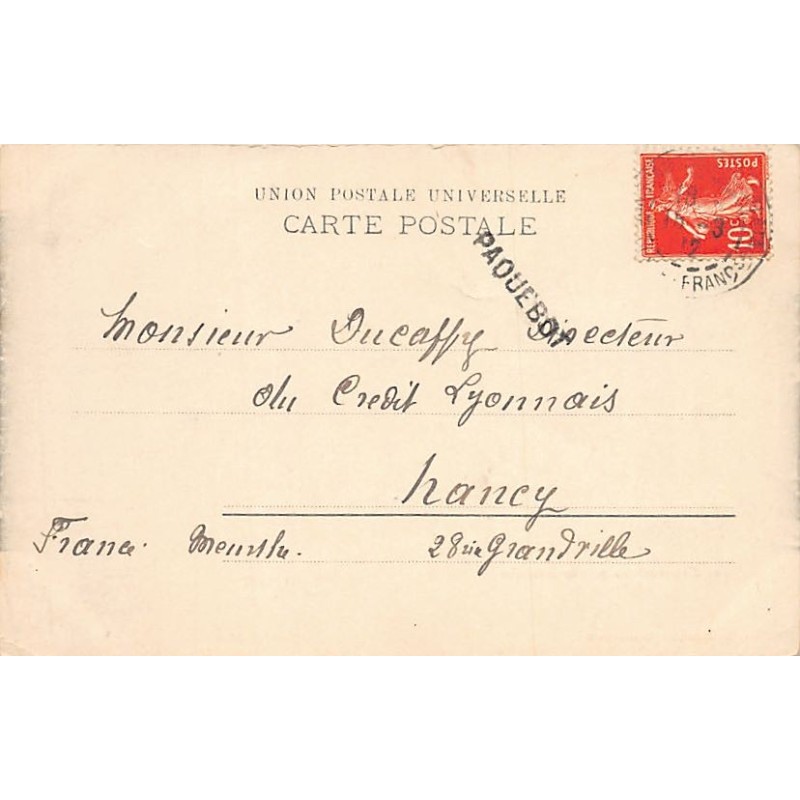 UNION POSTALE UNIVERSELLE
CARTE POSTALE
POSTES
REPUBLIQUE FRANÇAISE
10c
3
12
FRANCS
PAQUEBOT
Monsieur Ducaffy Directeur
du Credit Lyonnais
Nancy
France. Meurthe. 28 rue Grandville